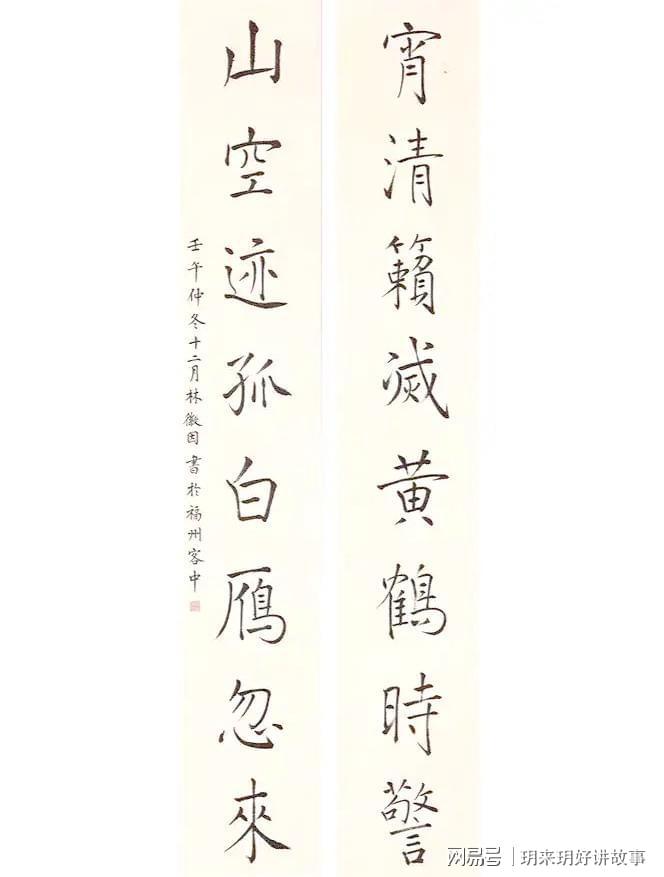 宵清籟滅黄鶴時警
山空迹孤白鴈忽來
壬午仲冬十二月林徽因書於福州客中
网易号 | 玥来玥好讲故事